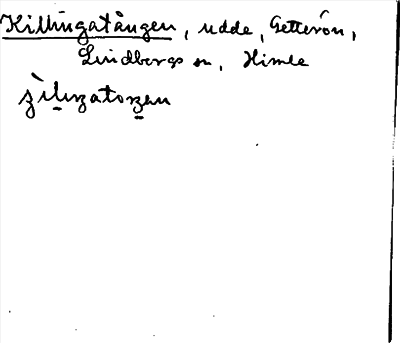 Killingatången, udde, Getterön,
Lindbergs sn, Himle